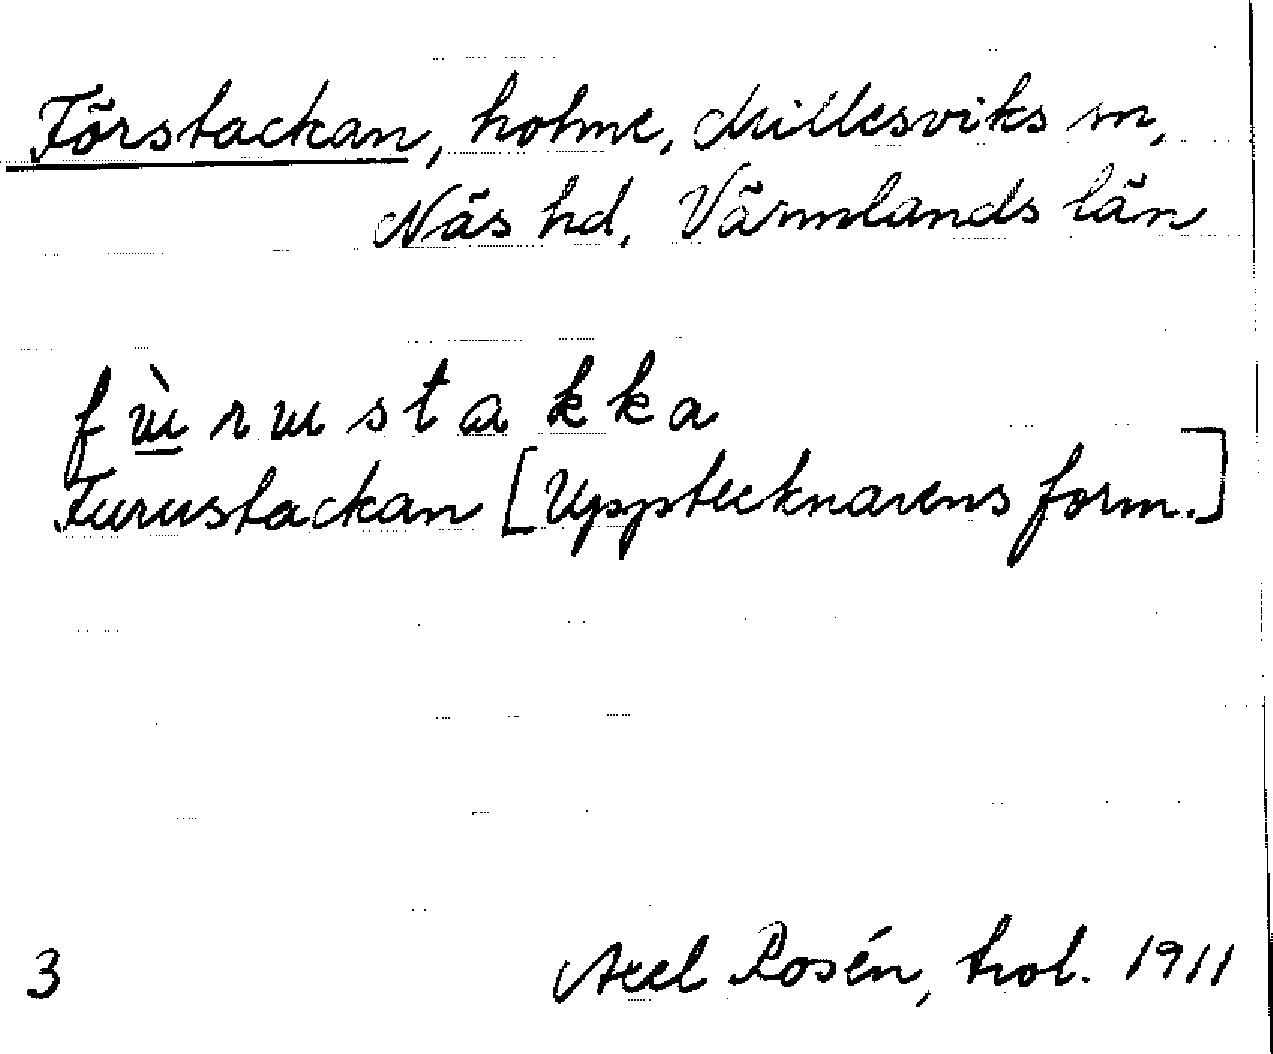 Förstackan, holme, Millesviks sn,
Näs hd, Värmlands län
fɯ̀rɯstakka
Furustackan [Upptecknarens form.]
3 Axel Rosén, trol. 1911